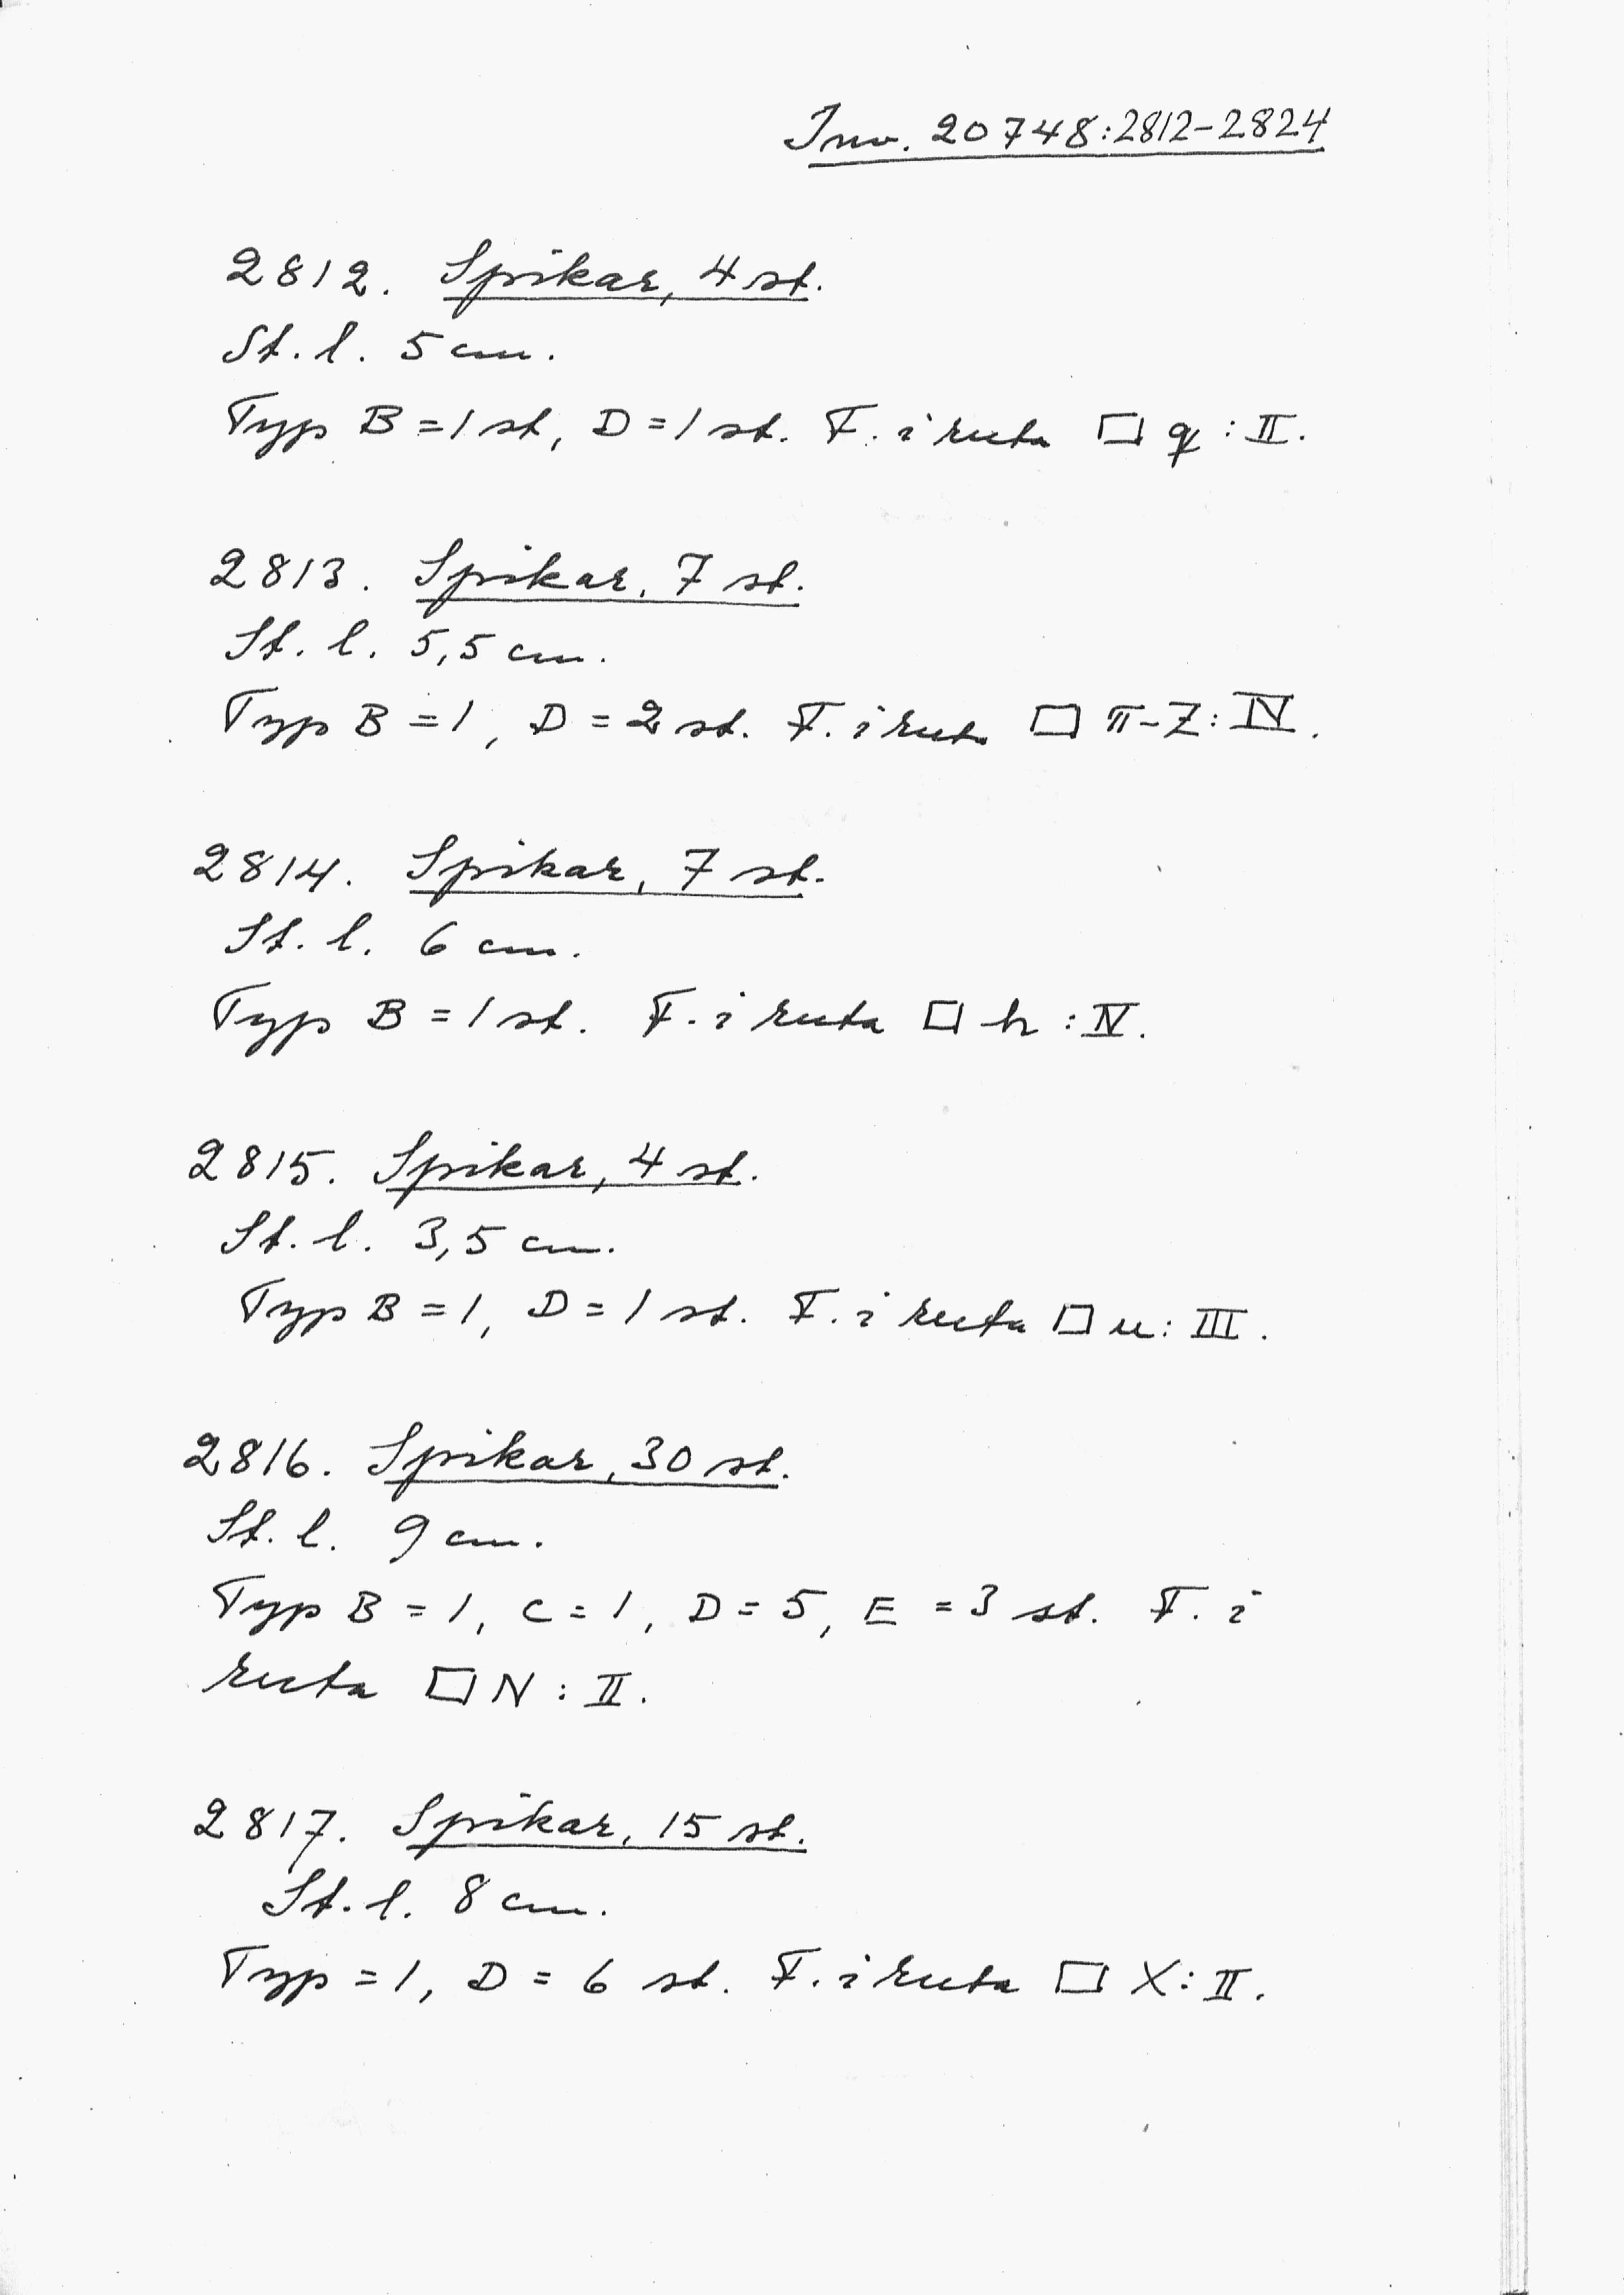 Inv. 20748:2812-2824
2812. Spikar, 4 st.
St. l. 5 cm.
Typ B = 1 st, D = 1 st. F. i ruta □ q : II.
2813. Spikar, 7 st.
St. l. 5,5 cm.
Typ B = 1, D = 2 st. F. i ruta □ π-Z: IV.
2814. Spikar, 7 st.
St. l. 6 cm.
Typ B = 1 st. F. i ruta □ h : IV.
2815. Spikar, 4 st.
St. l. 3,5 cm.
Typ B = 1, D = 1 st. F. i ruta □ u: III.
2816. Spikar, 30 st.
St. l. 9 cm.
Typ B = 1, C = 1, D = 5, E = 3 st. F. i
ruta □ N : II.
2817. Spikar, 15 st.
St. l. 8 cm.
Typ = 1, D = 6 st. F. i ruta □ X: II.